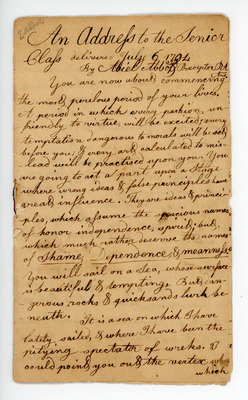 An Address to the Senior
Class delivered July 6, 1794
By Abiel Abbot, Preceptor, P.A.
You are now about commencing
the most perilous period of your lives.
A period in which every passion, un-
friendly to virtue, will be excited; every
temptation dangerous to morals will be set
before you; & every art calculated to mis-
lead will be practised upon you. You
are going to act a part upon a Stage
where wrong ideas & false principles have
great influence. They are ideas & princi-
ples, which assume the specious names
of honor independence, spirit; but,
which much rather deserve the names
of Shame, Dependence, & meanness.
You will sail on a Sea, whose surface
is beautiful & tempting. But dan-
gerous, rocks & quicksands lurk be
neath.
It is a sea on which I have
lately sailed, & where I have been the
pitying spectator of wreks. I
could point you out the vertex
which